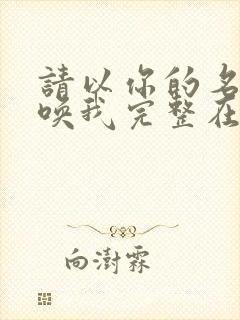 請以你的名
喚我完整在
向澍霖